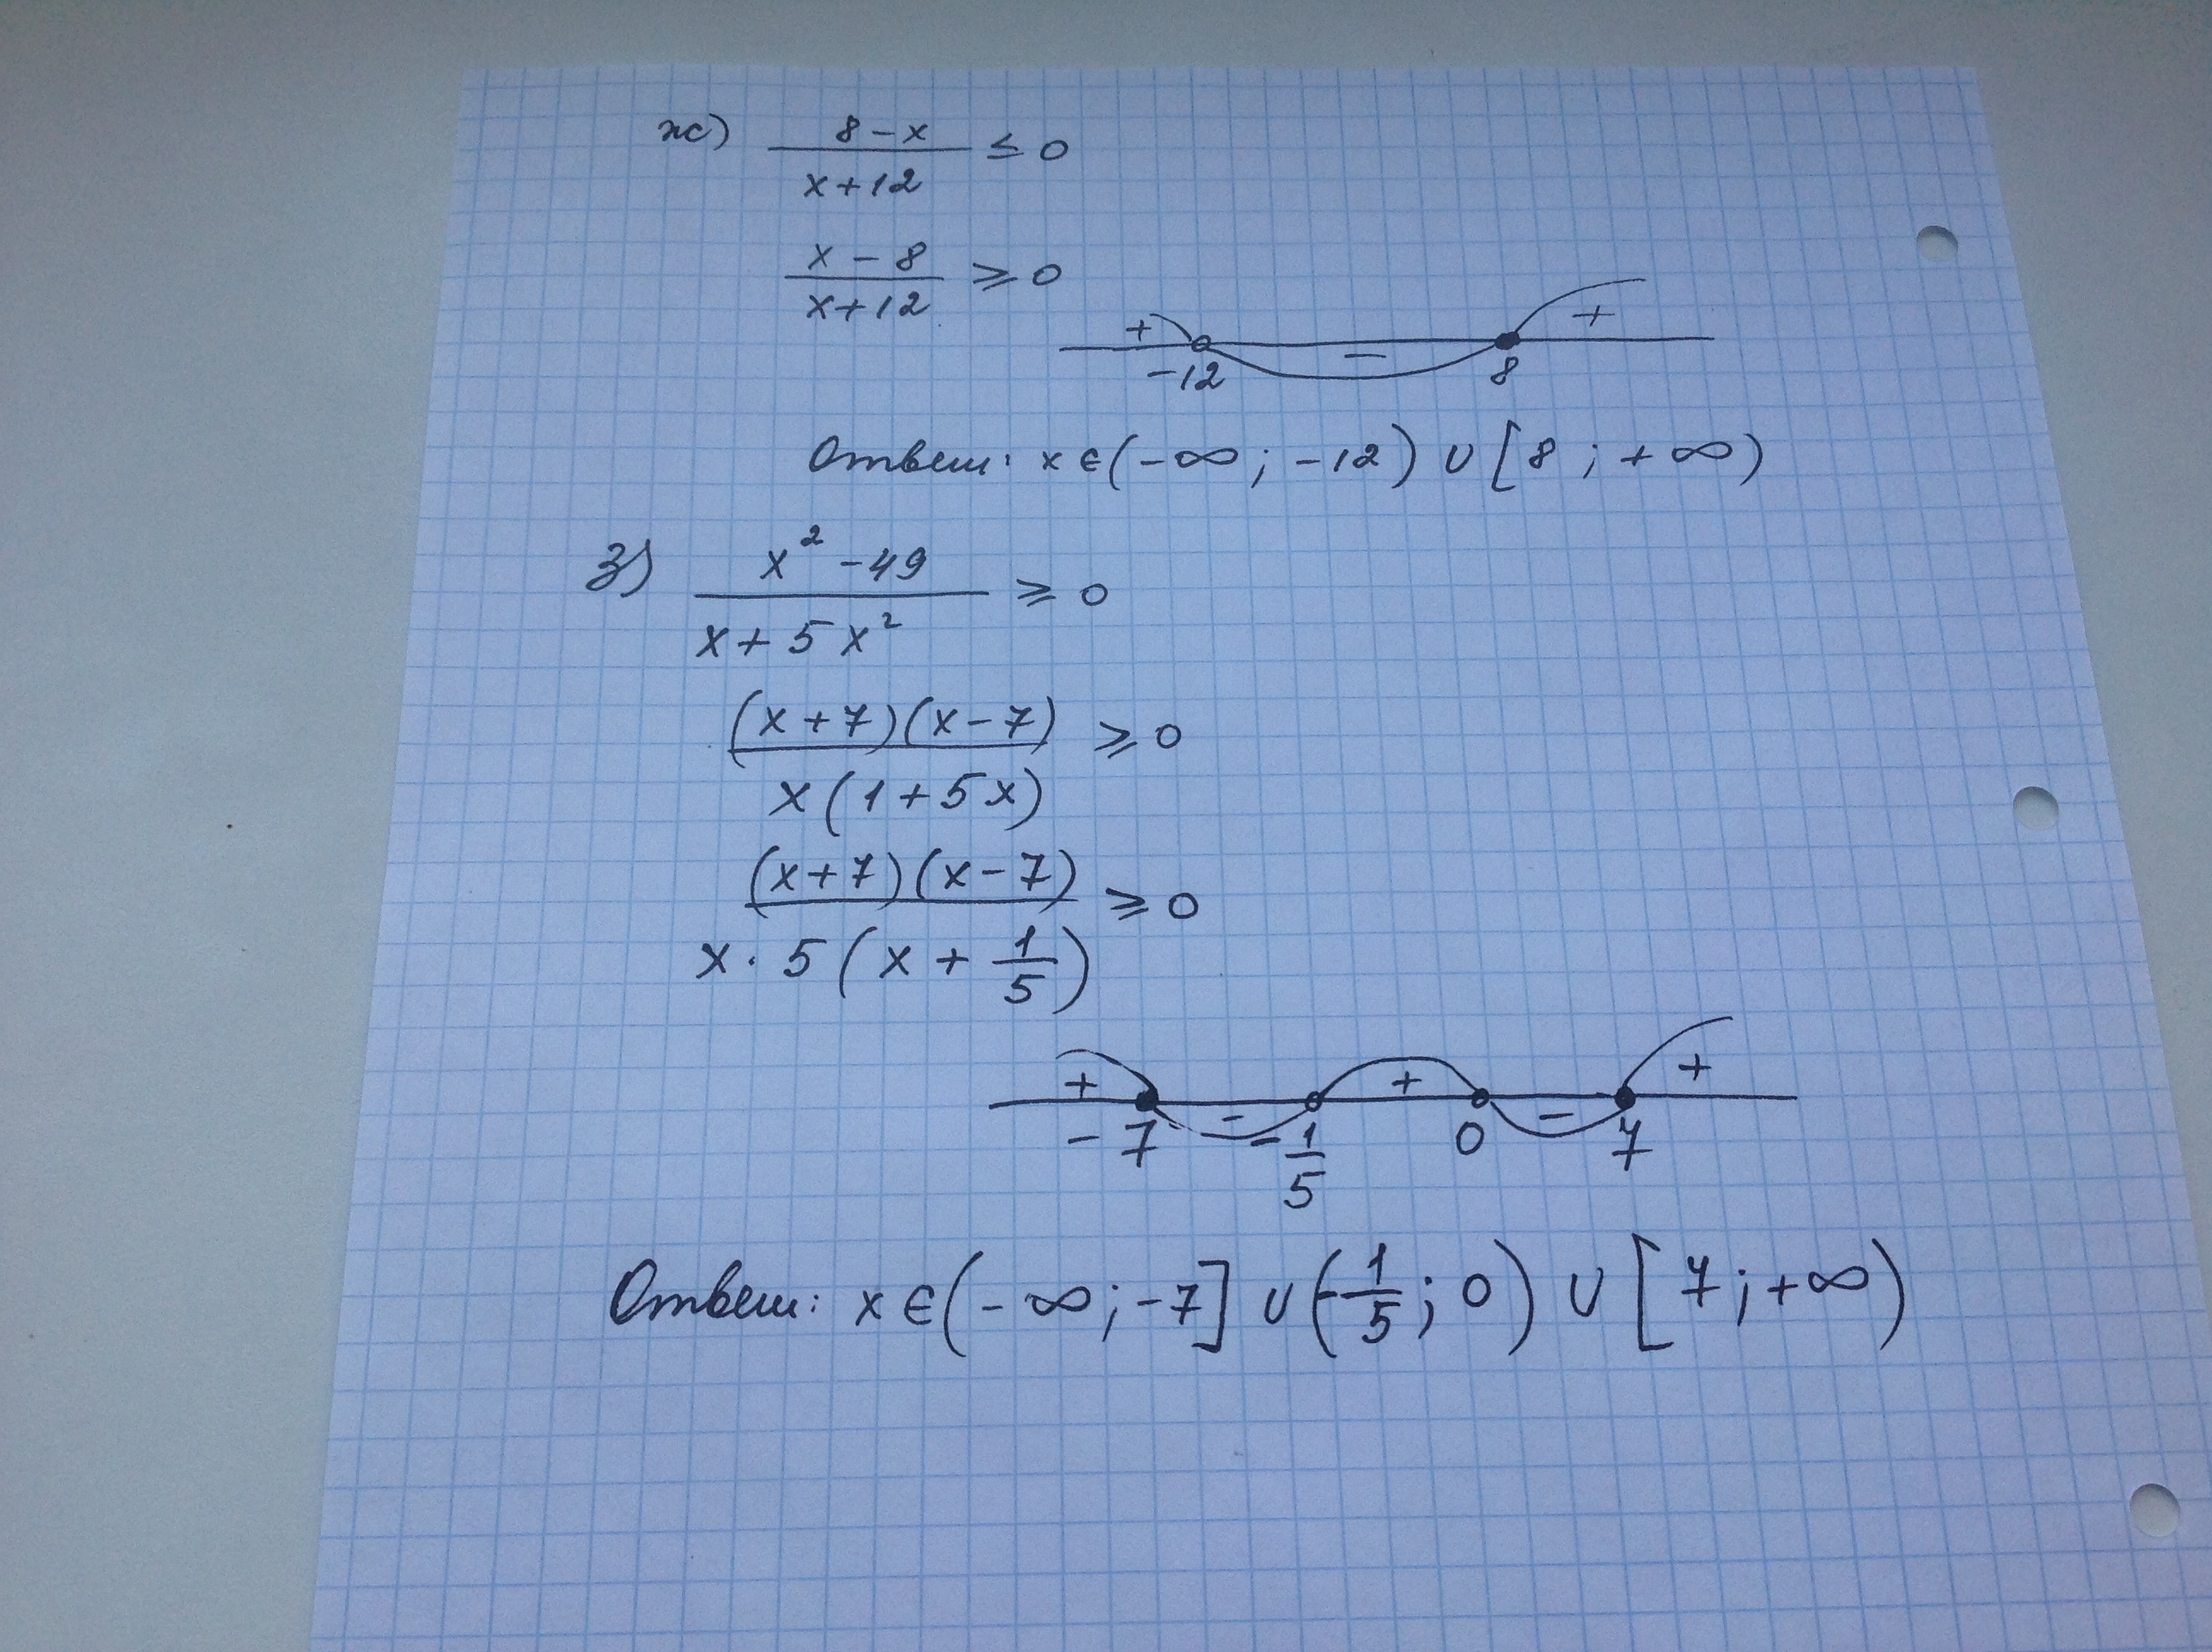 ж) (8 − x)/(x + 12) ≤ 0
(x − 8)/(x + 12) ≥ 0
+ − +
−12 8
Ответ: x ∈ (−∞; −12) ∪ [8; +∞)
з) (x² − 49)/(x + 5x²) ≥ 0
(x + 7)(x − 7)/(x(1 + 5x)) ≥ 0
(x + 7)(x − 7)/(x · 5(x + 1/5)) ≥ 0
+ − + − +
−7 −1/5 0 7
Ответ: x ∈ (−∞; −7] ∪ (−1/5; 0) ∪ [7; +∞)